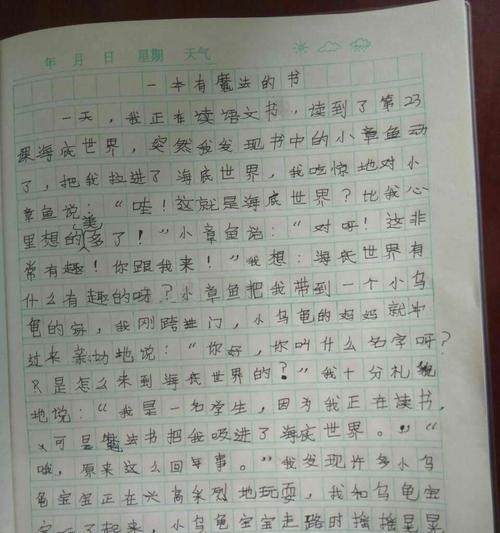 年 月 日 星期 天气
一本有魔法的书
一天，我正在读语文书，读到了第23
课海底世界，突然我发现书中的小章鱼动
了，把我拉进了海底世界，我吃惊地对小
章鱼说：“哇！这就是海底世界？比我心
里想的美多了！”小章鱼说：“对呀！这非
常有趣！你跟我来！”我想：海底世界有
什么有趣的呀？小章鱼把我带到一个小乌
龟的家，我刚跨进门，小乌龟的妈妈就
过来亲切地说：“你好，你叫什么名字呀？
是怎么来到海底世界的？”我十分礼貌
地说：“我是一名学生，因为我正在读书，
可是魔法书把我吸进了海底世界。”“
哦，原来这么回事。”我发现许多小乌
龟宝宝正在兴高采烈地玩耍，我和乌龟宝
宝玩了起来，小乌龟宝宝走路时摇摇晃晃